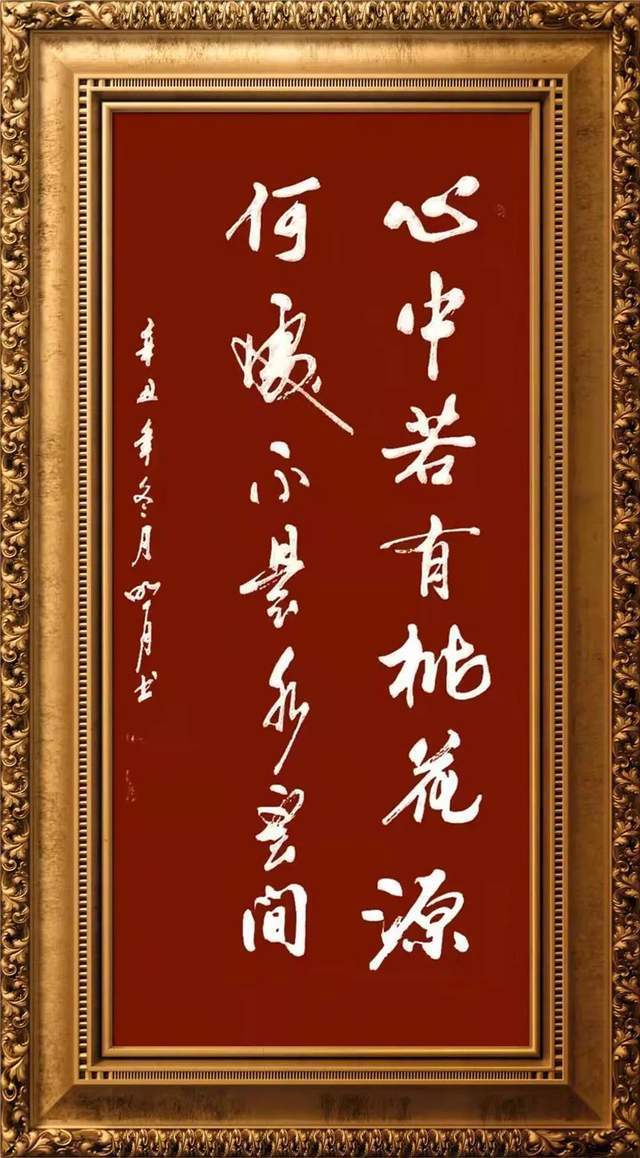 心中若有桃花源
何處不是水雲間
辛丑年冬月明月书